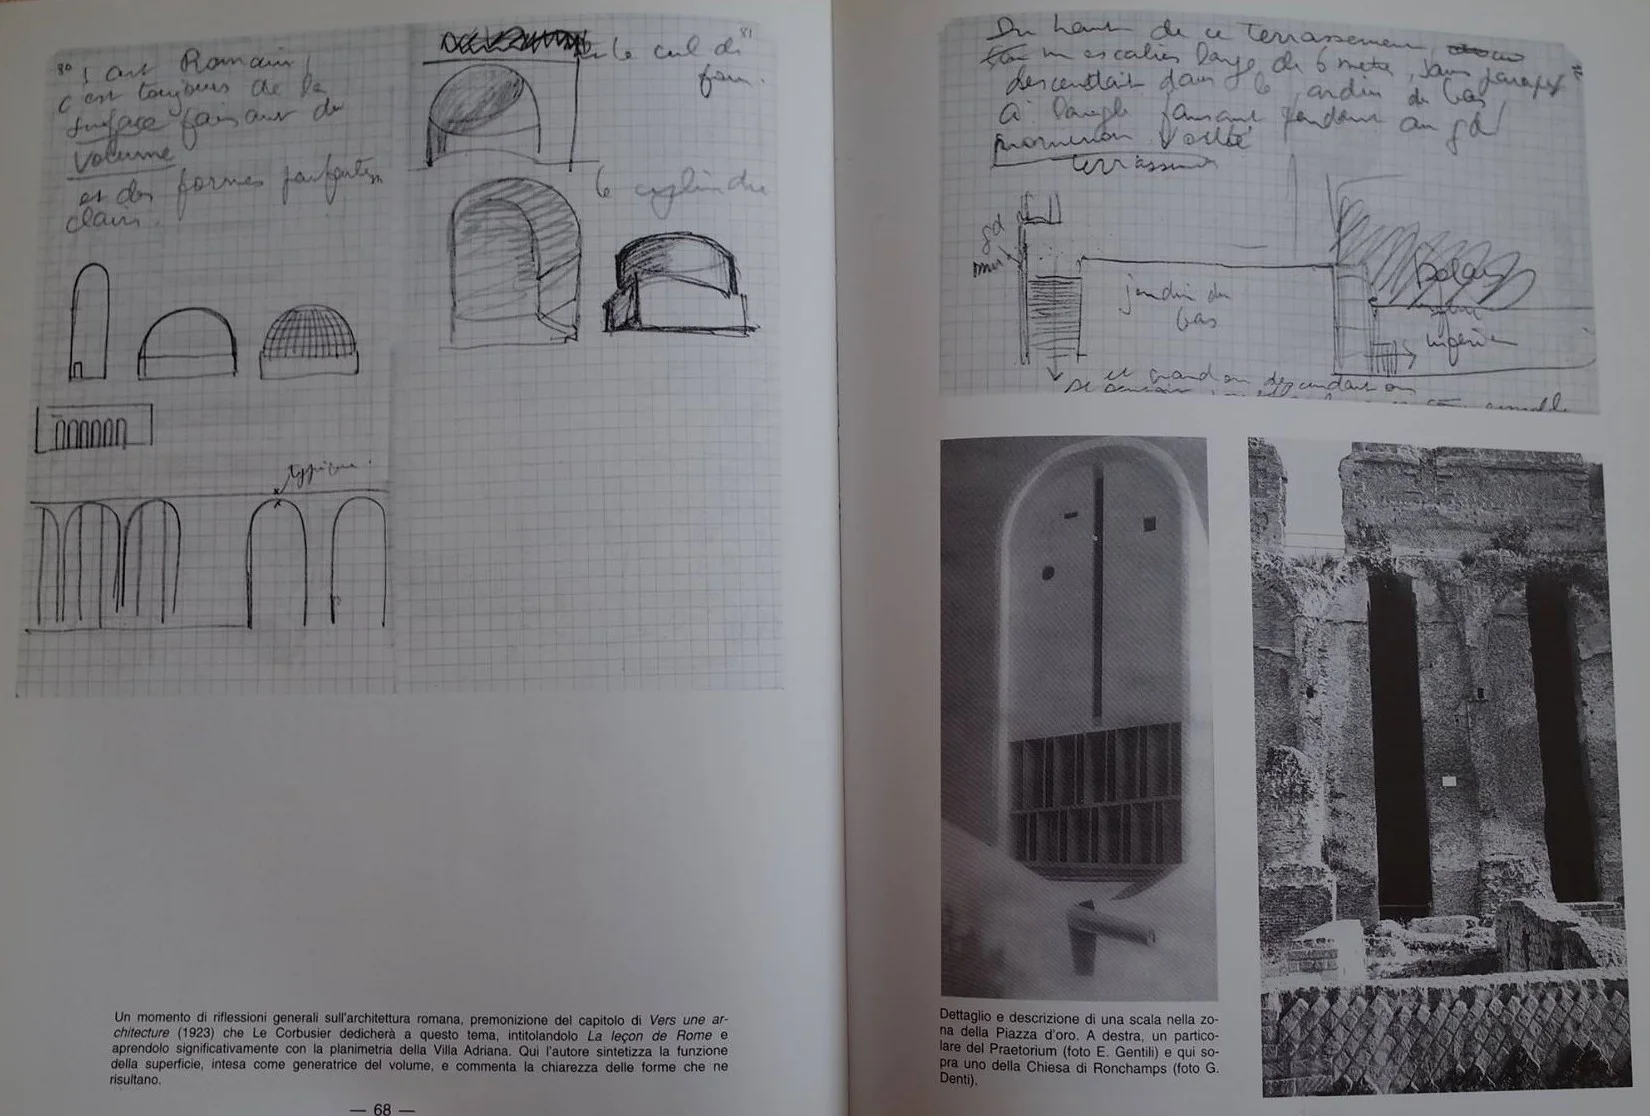 80
l'art Romain,
c'est toujours de la
surface faisant du
volume
et des formes parfaitem
clairs.
typique.
81
le cul de
four.
le cylindre
Du haut de ce terrassement,
un escalier large de 6 metre, sans parapet
descendait dans le jardin du bas
à l'angle faisant pendant au gd
promenoir voûté
terrassement
gd
mur
jardin du
bas
palais
jardin
inférieur
et grand on descendait
Un momento di riflessioni generali sull'architettura romana, premonizione del capitolo di Vers une ar-
chitecture (1923) che Le Corbusier dedicherà a questo tema, intitolandolo La leçon de Rome e
aprendolo significativamente con la planimetria della Villa Adriana. Qui l'autore sintetizza la funzione
della superficie, intesa come generatrice del volume, e commenta la chiarezza delle forme che ne
risultano.
— 68 —
Dettaglio e descrizione di una scala nella zo-
na della Piazza d'oro. A destra, un partico-
lare del Praetorium (foto E. Gentili) e qui so-
pra uno della Chiesa di Ronchamps (foto G.
Denti).